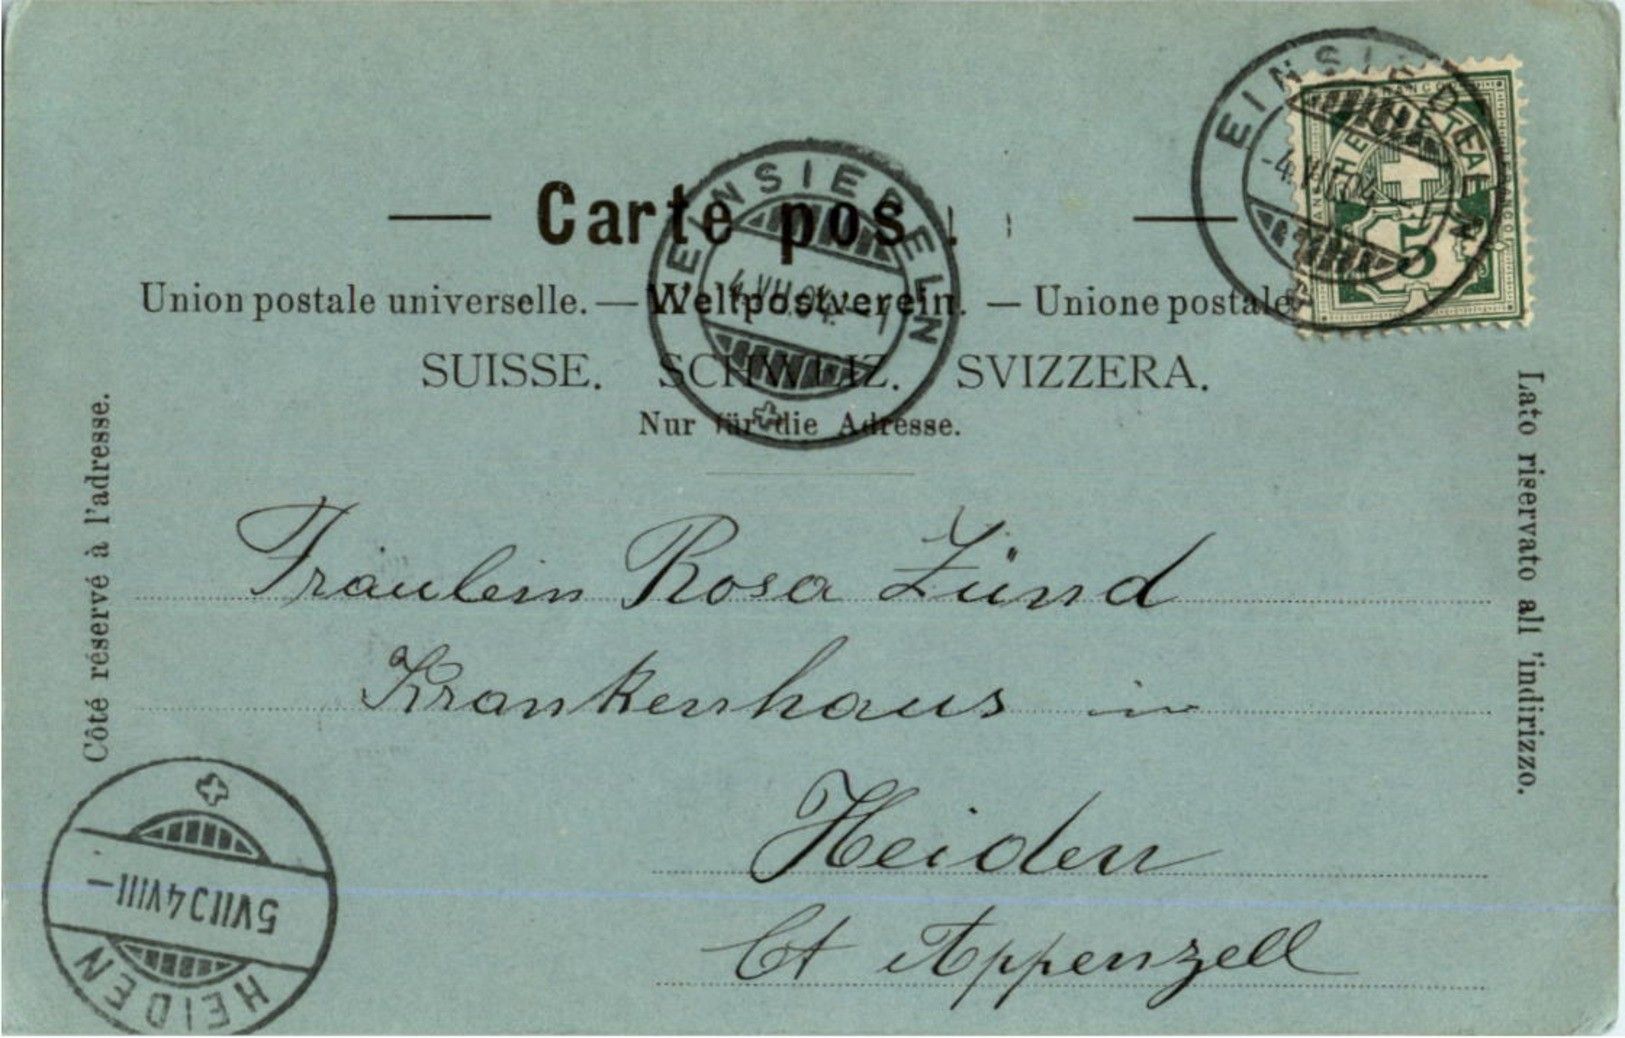 Carte pos
Union postale universelle. — Weltpostverein. — Unione postale
SUISSE. SCHWEIZ. SVIZZERA.
Nur für die Adresse.
Côté réservé à l'adresse.
Lato riservato all'indirizzo.
EINSIEDELN
4.VII.04.
EINSIEDELN
-4.VII.04
FRANCO
HELVETIA
5
Fräulein Rosa Zünd
Krankenhaus in
Heiden
Ct Appenzell
HEIDEN
5 VII 04 VIII –